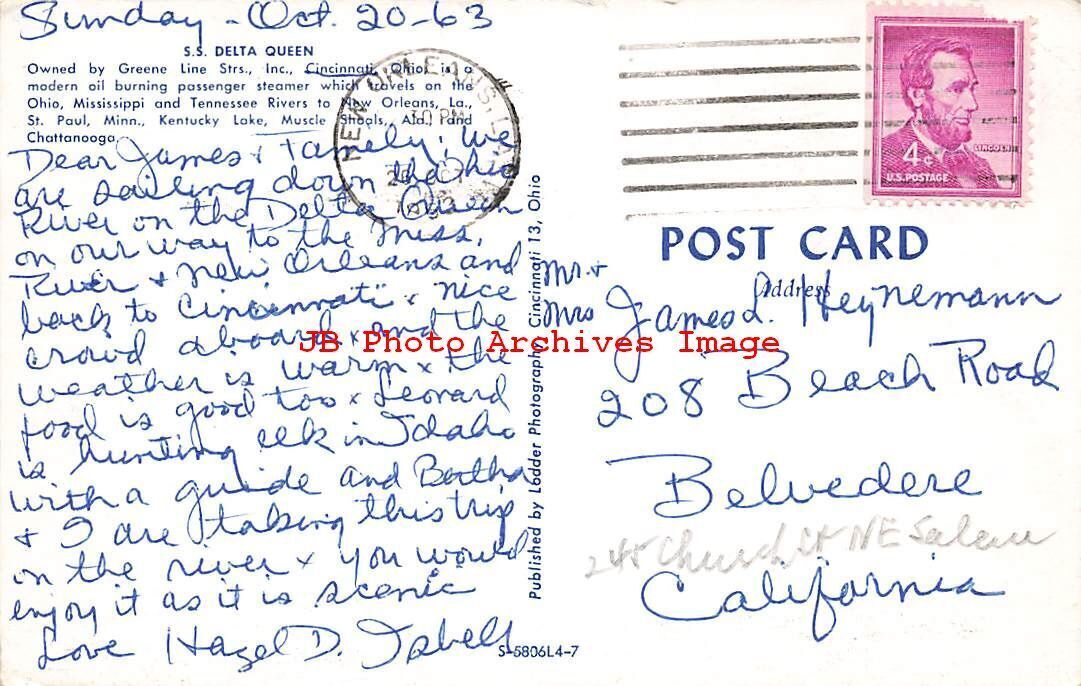 Sunday - Oct. 20-63
S.S. DELTA QUEEN
Owned by Greene Line Strs., Inc., Cincinnati, Ohio, is a
modern oil burning passenger steamer which travels on the
Ohio, Mississippi and Tennessee Rivers to New Orleans, La.,
St. Paul, Minn., Kentucky Lake, Muscle Shoals, Ala., and
Chattanooga.
Dear James & Family; We
are sailing down the Ohio
River on the Delta Queen
on our way to the Miss.
River & New Orleans and
back to Cincinnati x nice
crowd aboard x and the
weather is warm x the
food is good too x Leonard
is hunting elk in Idaho
with a guide and Bertha
& I are taking this trip
on the river x you would
enjoy it as it is scenic
Love Hazel D. Isbell
NEW ORLEANS, LA
PM
Published by Lodder Photography, Cincinnati 13, Ohio
S-5806L4-7
LINCOLN
4¢
U.S. POSTAGE
POST CARD
Address
Mr. &
Mrs James L. Heynemann
208 Beach Road
Belvedere
245 Church St NE Salem
California
JB Photo Archives Image